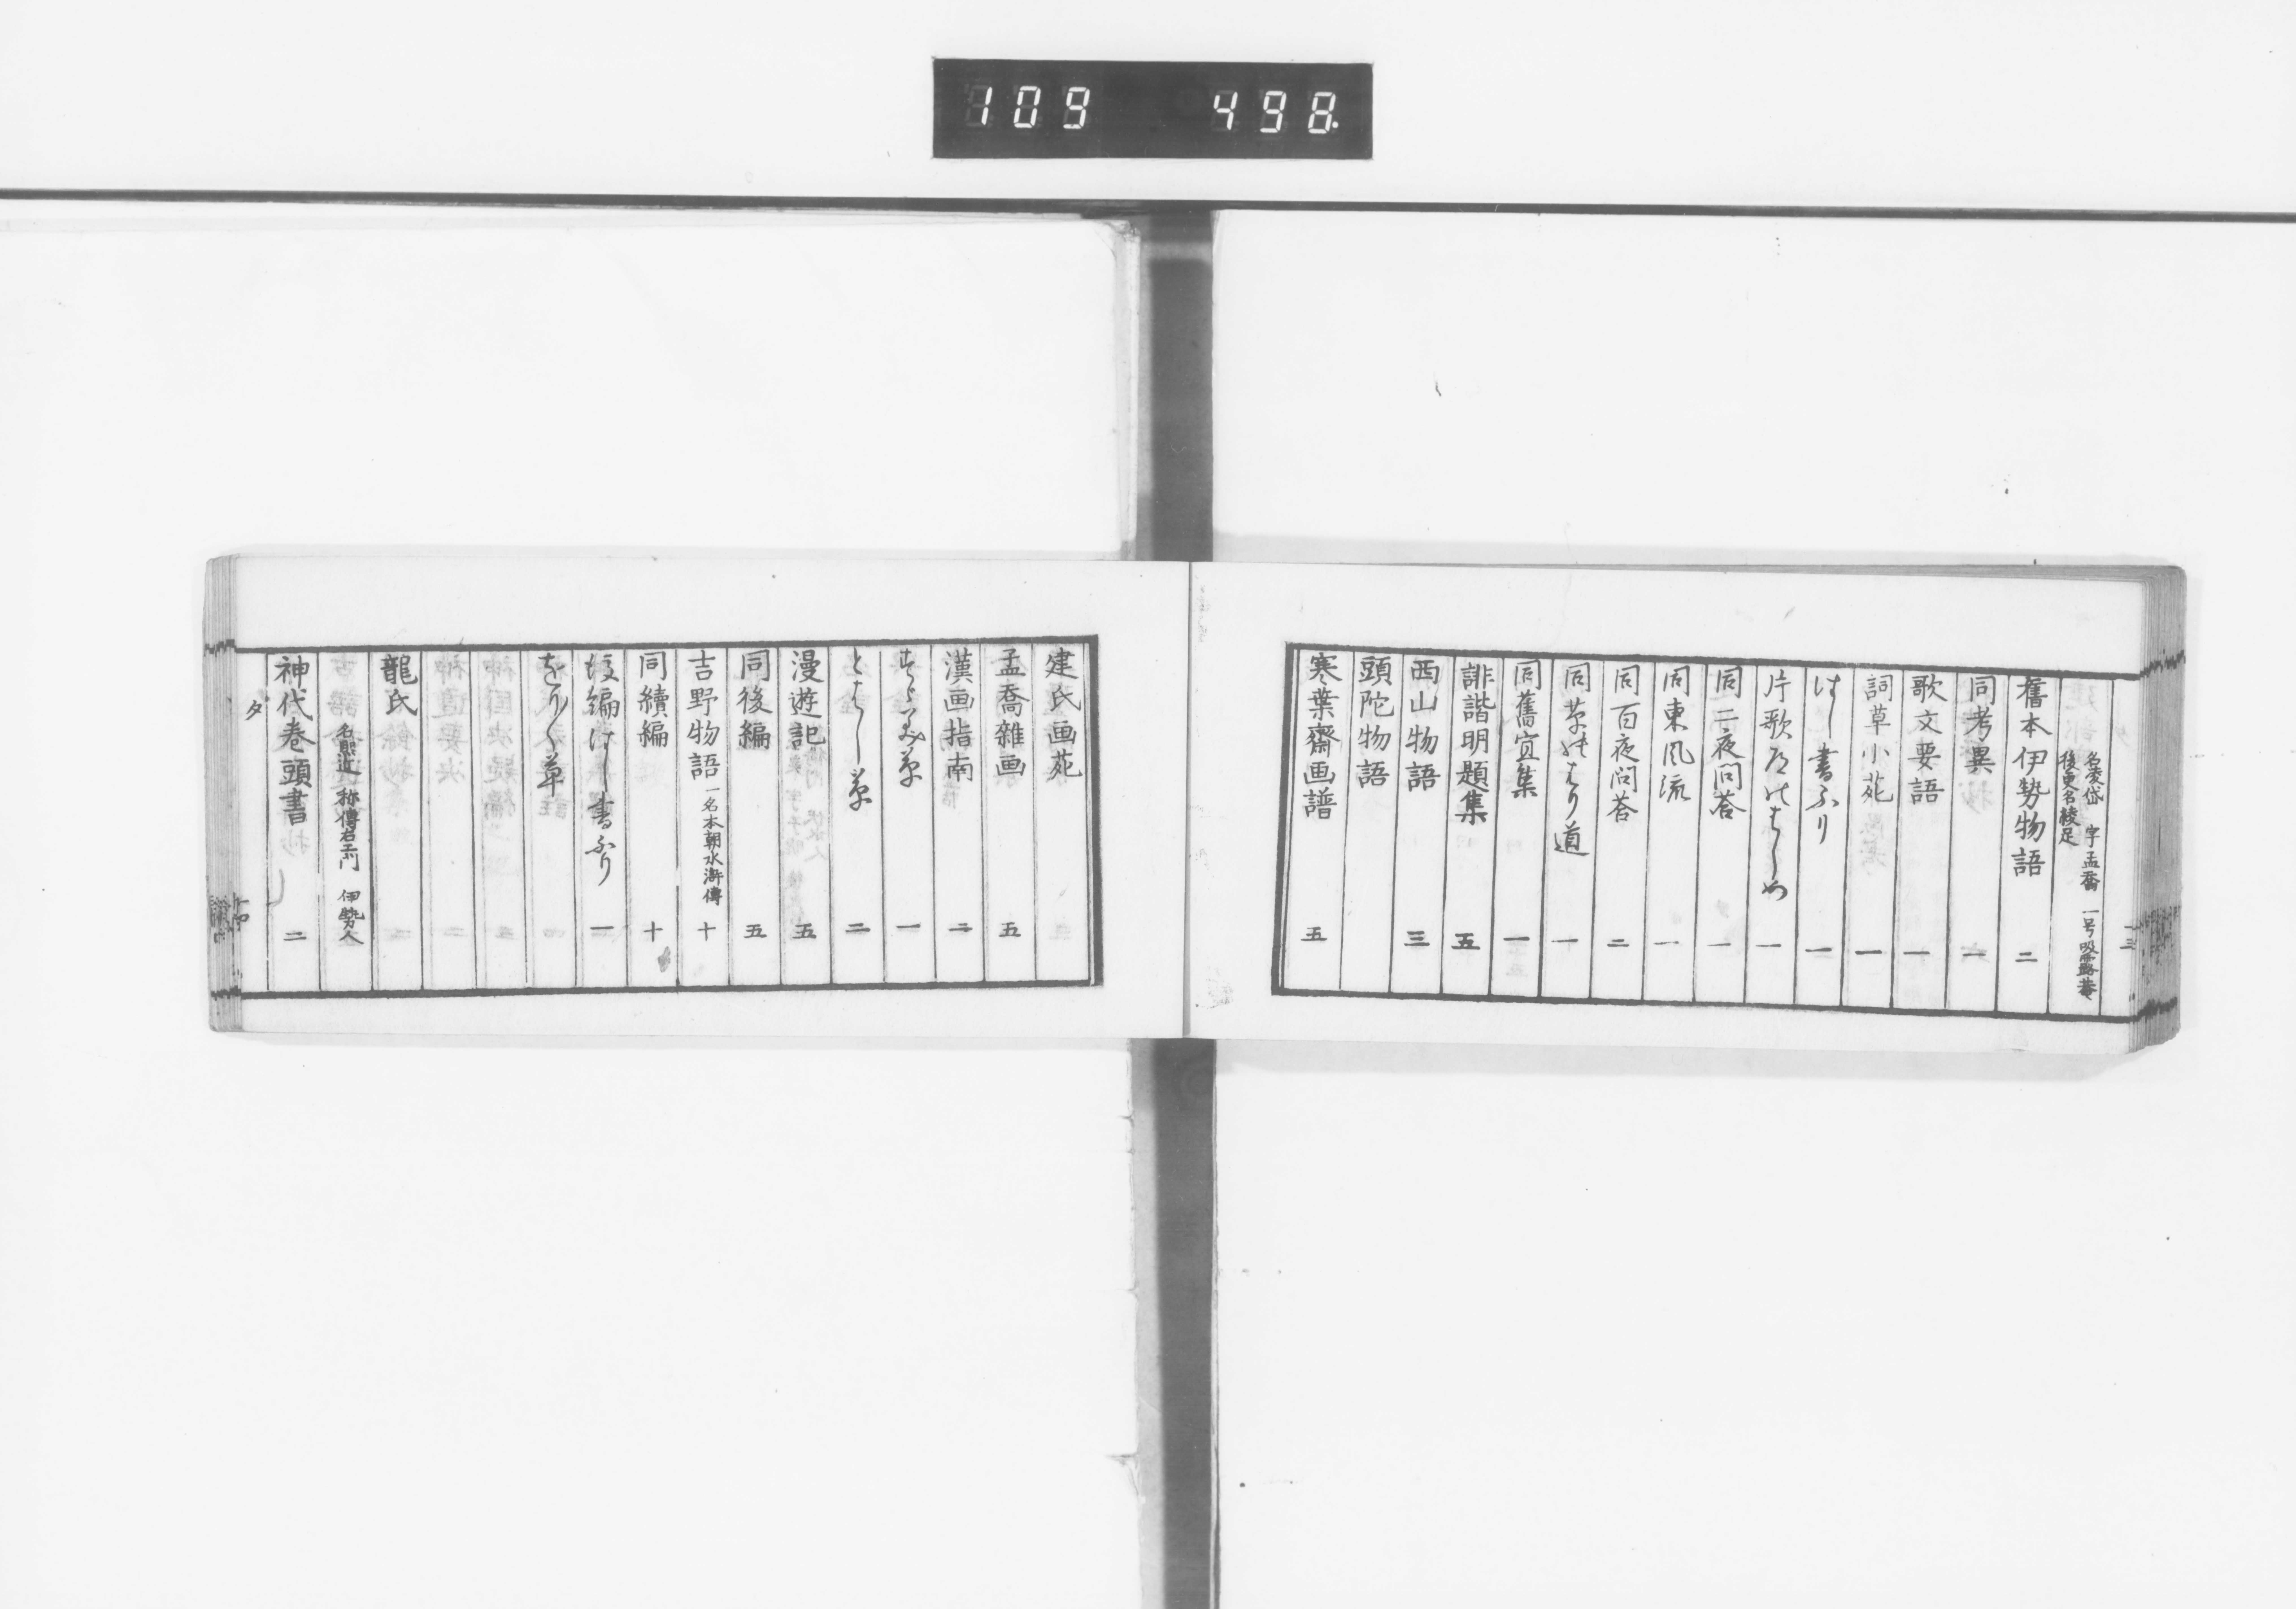 109 498
名凌岱 字孟喬 一号吸露菴
後更名綾足
舊本伊勢物語 二
同考異 一
歌文要語 一
詞草小苑 一
はし書ふり 一
片歌道のはしめ 一
同二夜問答 一
同東風流 一
同百夜问荅 二
同草のはり道 一
同舊宜集 一
誹諧明題集 五
西山物語 三
頭陀物語
寒葉齋画譜 五
建氏画苑
孟喬雜画 五
漢画指南 二
すゝみ草 一
とはし草 二
漫遊記 五
同後編 五
吉野物語 一名本朝水滸傳 十
同續編 十
後編はし書ふり 一
をり〱草
龍氏 名熙近 称傳右エ门 伊勢人
神代卷頭書 二
タ
十四